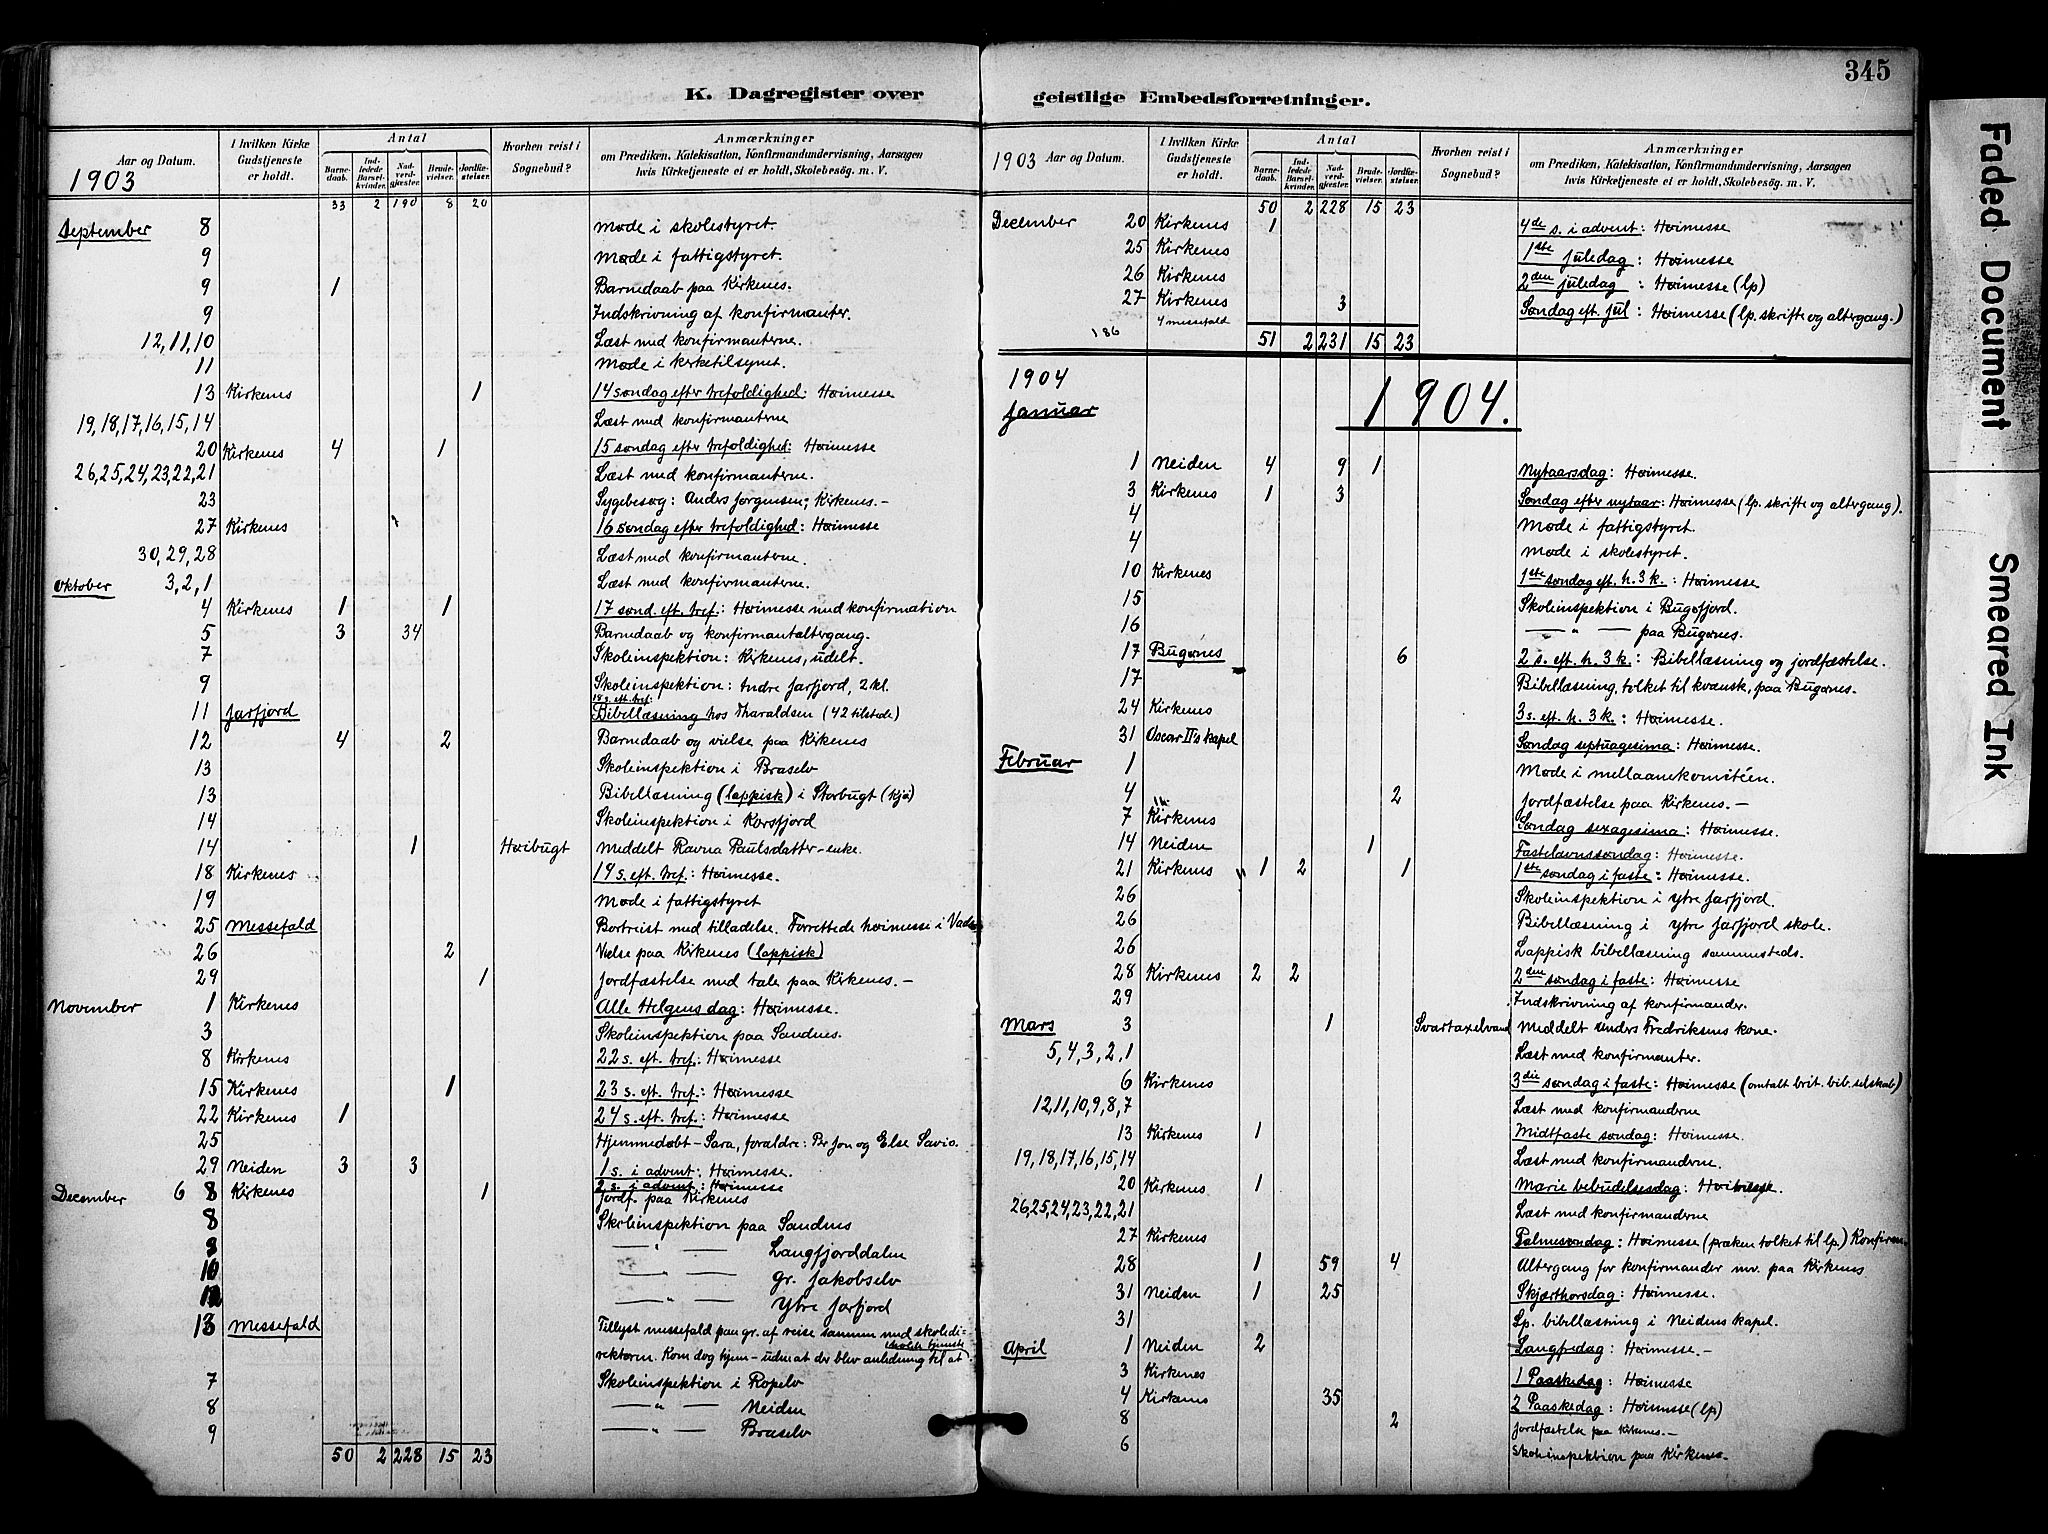 345
K. Dagregister over geistlige Embedsforretninger.
Aar og Datum.
1903
I hvilken Kirke Gudstjeneste er holdt.
Antal
Barnedaab.
Indledede Barselkvinder.
Nadverdgjester.
Brudevielser.
Jordfæstelser.
Hvorhen reist i Sognebud?
Anmærkninger
om Prædiken, Katekisation, Konfirmandundervisning, Aarsagen
hvis Kirketjeneste ei er holdt, Skolebesøg. m. V.
33 2 190 8 20
September 8 Møde i skolestyret.
9 Møde i fattigstyret.
9 1 Barnedaab paa Kirkenes.
9 Indskrivning af konfirmanter.
12, 11, 10 Læst med konfirmanterne.
11 Møde i kirketilsynet.
13 Kirkenes 1 14 søndag efter trefoldighed: Høimesse
19, 18, 17, 16, 15, 14 Læst med konfirmanterne
20 Kirkenes 4 1 15 søndag efter trefoldighed: Høimesse
26, 25, 24, 23, 22, 21 Læst med konfirmanterne.
23 Sygebesøg: Anders Jørgensen, Kirkenes.-
27 Kirkenes 16 søndag efter trefoldighed: Høimesse
30, 29, 28 Læst med konfirmanterne.
Oktober 3, 2, 1 Læst med konfirmanterne.
4 Kirkenes 1 1 17 sønd. eft. tref.: Høimesse med konfirmation
5 3 34 Barnedaab og konfirmantaltergang.
7 Skoleinspektion: Kirkenes, udelt.
9 Skoleinspektion: Indre Jarfjord, 2 kl.
18 s. eft. tref:
11 Jarfjord Bibellæsning hos Tharaldsen (42 tilstede)
12 4 2 Barnedaab og vielse paa Kirkenes
13 Skoleinspektion i Braselv
13 Bibellæsning (lappisk) i Storbugt (Kjø)
14 Skoleinspektion i Korsfjord
14 1 Høibugt Meddelt Ravna Paulsdatter - enke.
18 Kirkenes 19 s. eft. tref.: Høimesse.
19 Møde i fattigstyret
25 Messefald Bortreist med tilladelse. Forrettede høimesse i Vadsø
26 2 Vielse paa Kirkenes (lappisk)
29 1 Jordfæstelse med tale paa Kirkenes. -
November 1 Kirkenes Alle Helgens dag: Høimesse.
3 Skoleinspektion paa Sandnes.
8 Kirkenes 22 s. eft. tref.: Høimesse
15 Kirkenes 1 23 s. eft. tref.: Høimesse
22 Kirkenes 1 24 s. eft. tref.: Høimesse
25 Hjemmedøbt - Sara, foraldre: Per Jon og Else Savio.
29 Neiden 3 3 1 s. i advent: Høimesse.
2 s. i advent: Høimesse
December 6 8 Kirkenes 1 Jordf. paa Kirkenes
8 Skoleinspektion paa Sandnes
8 — " — Langfjorddalen
10 — " — gr. Jakobselv
12 — " — Ytre Jarfjord
13 Messefald Tillyst messefald paa gr. af reise sammen med skoledi-
rektøren. Kom dog hjem - uden at der blev anledning til at
7 Skoleinspektion i Ropelv
8 — " — Neiden
9 — " — Braselv
50 2 228 15 23
1903 Aar og Datum.
I hvilken Kirke Gudstjeneste er holdt.
Antal
Barnedaab.
Indledede Barselkvinder.
Nadverdgjester.
Brudevielser.
Jordfæstelser.
Hvorhen reist i Sognebud?
Anmærkninger
om Prædiken, Katekisation, Konfirmandundervisning, Aarsagen
hvis Kirketjeneste ei er holdt, Skolebesøg. m. V.
50 2 228 15 23
December 20 Kirkenes 1 4de s. i advent: Høimesse
25 Kirkenes 1ste juledag: Høimesse
26 Kirkenes 2den juledag: Høimesse (lp)
27 Kirkenes 3 Søndag eft. jul: Høimesse (lp. skrifte og altergang.)
4 messefald
186 51 2 231 15 23
1904
1904.
Januar
1 Neiden 4 9 1 Nytaarsdag: Høimesse.
3 Kirkenes 1 3 Søndag efter nytaar: Høimesse (lp. skrifte og altergang).
4 Møde i fattigstyret.
4 Møde i skolestyret.
10 Kirkenes 1ste søndag eft. h. 3 k.: Høimesse
15 Skoleinspektion i Bugøfjord.
16 — " — paa Bugønes.
17 Bugønes 6 2 s. eft. h. 3 k.: Bibellæsning og jordfæstelse.
17 Bibellæsning, tolket til kvænsk, paa Bugønes.
24 Kirkenes 3 s. eft. h. 3 k.: Høimesse.
31 Oscar II's kapel Søndag septuagesima: Høimesse.
Februar 1 Møde i mellaanekomitéen.
4 2 Jordfæstelse paa Kirkenes. -
7 Kirkenes Søndag sexagesima: Høimesse.
14 Neiden 1 Fastelavnssøndag: Høimesse.
21 Kirkenes 1 2 1 1ste søndag i faste: Høimesse.
26 Skoleinspektion i ytre Jarfjord.
26 Bibellæsning i ytre Jarfjord skole.
26 Lappisk bibellæsning sammesteds.
28 Kirkenes 2 2 2den søndag i faste: Høimesse
29 Indskrivning af konfirmander.
Mars 3 1 Svartaxelvand Meddelt Anders Fredriksens kone.
5, 4, 3, 2, 1 Læst med konfirmanter.
6 Kirkenes 3die søndag i faste: Høimesse (omtalt brit. bib. selskab)
12, 11, 10, 9, 8, 7 Læst med konfirmanderne
13 Kirkenes 1 Midtfaste søndag: Høimesse.
19, 18, 17, 16, 15, 14 Læst med konfirmanderne.
20 Kirkenes 1 Marie bebudelsesdag: Høimesse.
26, 25, 24, 23, 22, 21 Læst med konfirmanderne
27 Kirkenes Palmesøndag: Høimesse (præken tolket til lp.) Konfirm.
28 1 59 4 Altergang for konfirmander mv. paa Kirkenes
31 Neiden 1 25 Skjærthorsdag: Høimesse.
31 Lp. bibellæsning i Neidens kapel.
April 1 Neiden 2 Langfredag: Høimesse. -
3 Kirkenes 1 Paaskedag: Høimesse
4 Kirkenes 35 2 Paaskedag: Høimesse (lp)
8 2 Jordfæstelse paa Kirkenes. -
6 Skoleinspektion paa Kirkenes.
Faded Document
Smeared Ink